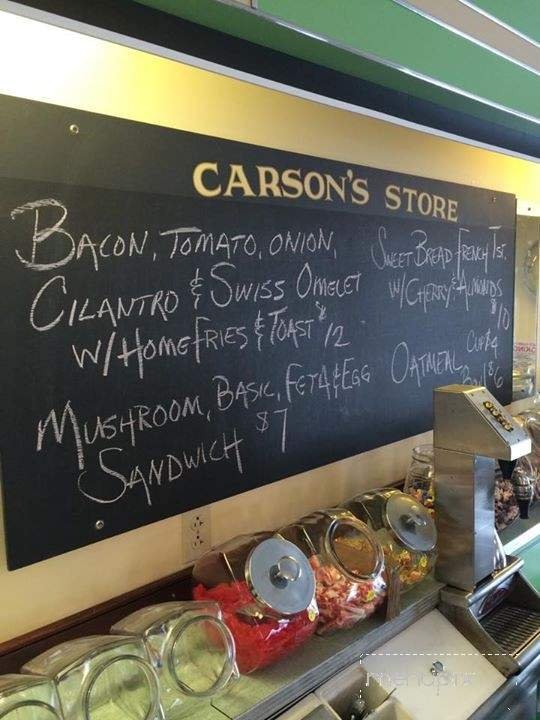 CARSON'S STORE
BACON, TOMATO, ONION,
CILANTRO & SWISS OMELET
W/HOMEFRIES & TOAST $12
MUSHROOM, BASIC, FETA & EGG
SANDWICH $7
SWEET BREAD FRENCH TST.
W/CHERRY & ALMONDS
$10
OATMEAL CUP $4
Bowl $6